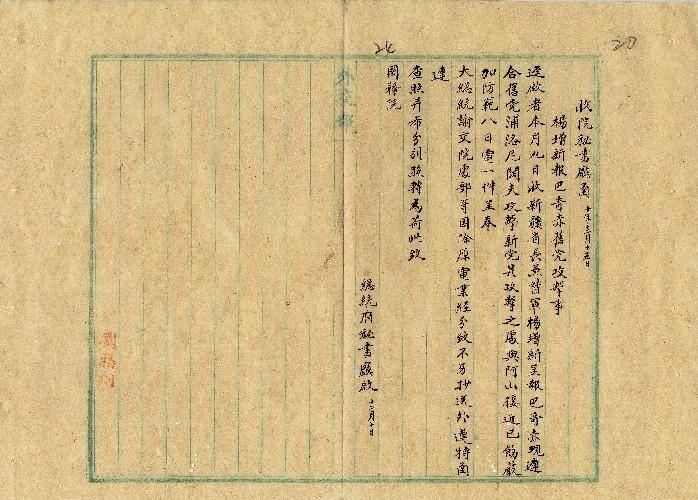 24
20
收院秘書廳函 十年十二月十五日
楊增新報巴奇赤舊党攻擊事
逕啟者本月九日收新疆省長兼督軍楊增新呈報巴奇赤現連
合舊党浦洛尼闊夫攻擊新党其攻擊之處與阿山接近已飭嚴
加防範八日電一件呈奉
大總統諭交院處部等因除原電業經分致不另抄送外逹特函
達
查照并希分别核轉為荷此致
國務院
總統府秘書廳啟 十二月十日
外交部